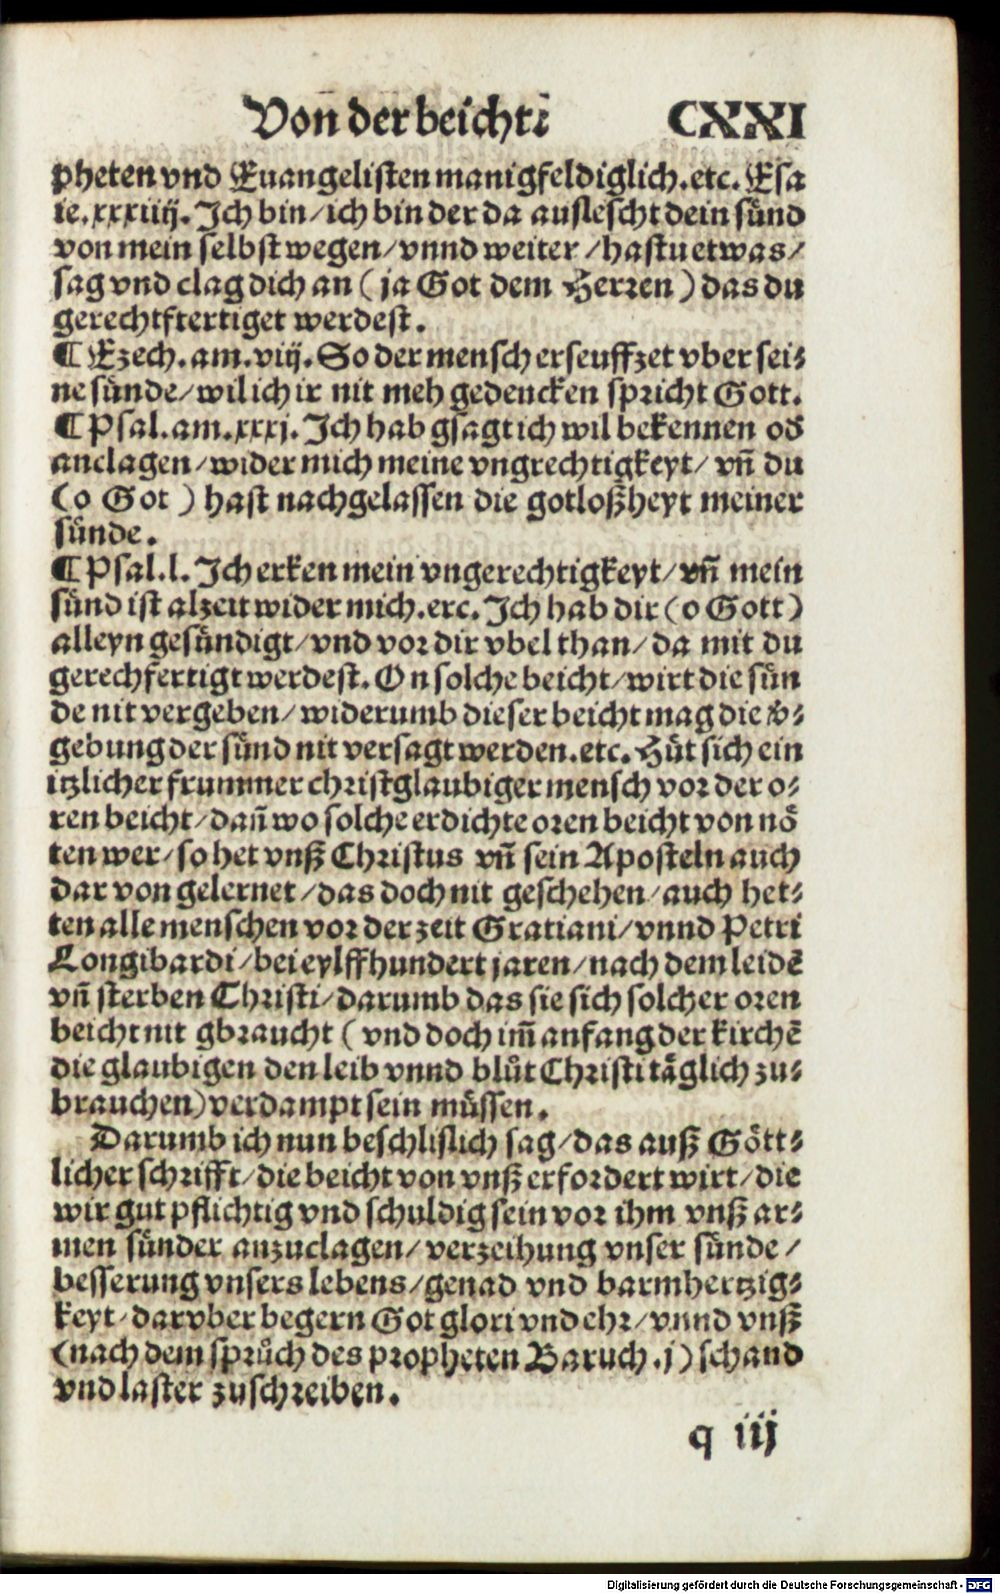 Von̄ der beichtē CXXI
pheten vnd Euangelisten manigfeldiglich.etc. Esa
ie.xxxiiij. Ich bin/ich bin der da auslescht dein sünd
von mein selbst wegen/vnnd weiter/hastu etwas/
sag vnd clag dich an (ja Got dem Herren) das du
gerechtftertiget werdest.
¶ Ezech.am.viij. So der mensch erseuffzet vber sei⸗
ne sünde/wil ich ir nit meh gedencken spricht Gott.
¶ Psal.am.xxxj. Ich hab gsagt ich wil bekennen od̕
anclagen/wider mich meine vngrechtigkeyt/vn̄ du
(o Got) hast nachgelassen die gotloßheyt meiner
sünde.
¶ Psal.l. Ich erken mein vngerechtigkeyt/vn̄ mein
sünd ist alzeit wider mich.etc. Ich hab dir (o Gott)
alleyn gesündigt/vnd vor dir vbel than/da mit du
gerechfertigt werdest. On solche beicht/wirt die sün
de nit vergeben/widerumb dieser beicht mag die v̕⸗
gebung der sünd nit versagt werden.etc. Hüt sich ein
itzlicher frummer christglaubiger mensch vor der o⸗
ren beicht/dan̄ wo solche erdichte oren beicht von nö
ten wer/so het vnß Christus vn̄ sein Aposteln auch
dar von gelernet/das doch nit geschehen/auch het⸗
ten alle menschen vor der zeit Gratiani/vnnd Petri
Longibardi/bei eylffhundert jaren/nach dem leidē
vn̄ sterben Christi/darumb das sie sich solcher oren
beicht nit gbraucht (vnd doch im̄ anfang der kirchē
die glaubigen den leib vnnd blůt Christi täglich zu⸗
brauchen) verdampt sein müssen.
Darumb ich nun beschlislich sag/das auß Gött⸗
licher schrifft/die beicht von vnß erfordert wirt/die
wir gut pflichtig vnd schuldig sein vor ihm vnß ar⸗
men sünder anzuclagen/verzeihung vnser sünde/
besserung vnsers lebens/genad vnd barmhertzig⸗
keyt/darvber begern Got glori vnd ehr/vnnd vnß
(nach dem sprůch des propheten Baruch.j) schand
vnd laster zuschreiben.
q iij
Digitalisierung gefördert durch die Deutsche Forschungsgemeinschaft - DFG